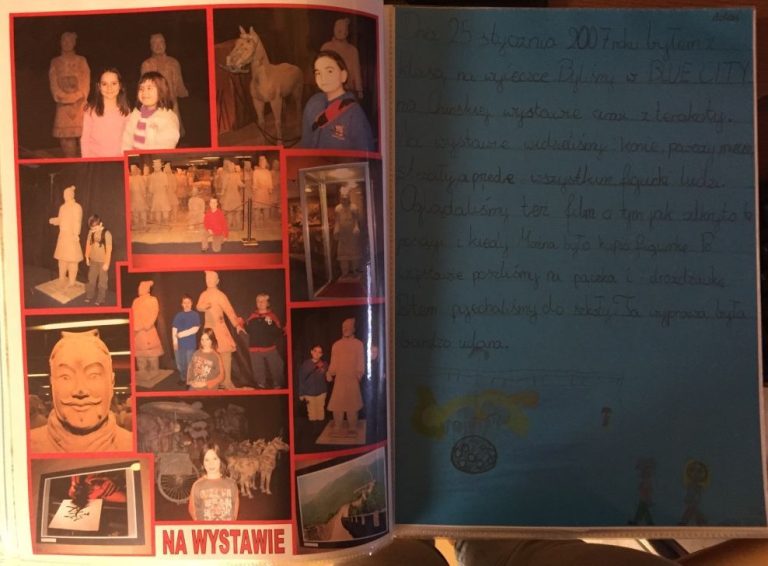 NA WYSTAWIE
Dnia 25 stycznia 2007 roku byłam z
klasą na wycieczce. Byliśmy w BLUE CITY
na Chińskiej wystawie armi z terakoty.
na wystawie widzieliśmy konie,
strzały, a przede wszystkim figurki ludzi.
Oglądaliśmy też film o tym jak odkryto te
i kiedy. Można było kupić figurkę. Po
wystawie poszliśmy na pączka i drożdżówkę.
Potem pojechaliśmy do szkoły. Ta wyprawa była
bardzo udana.